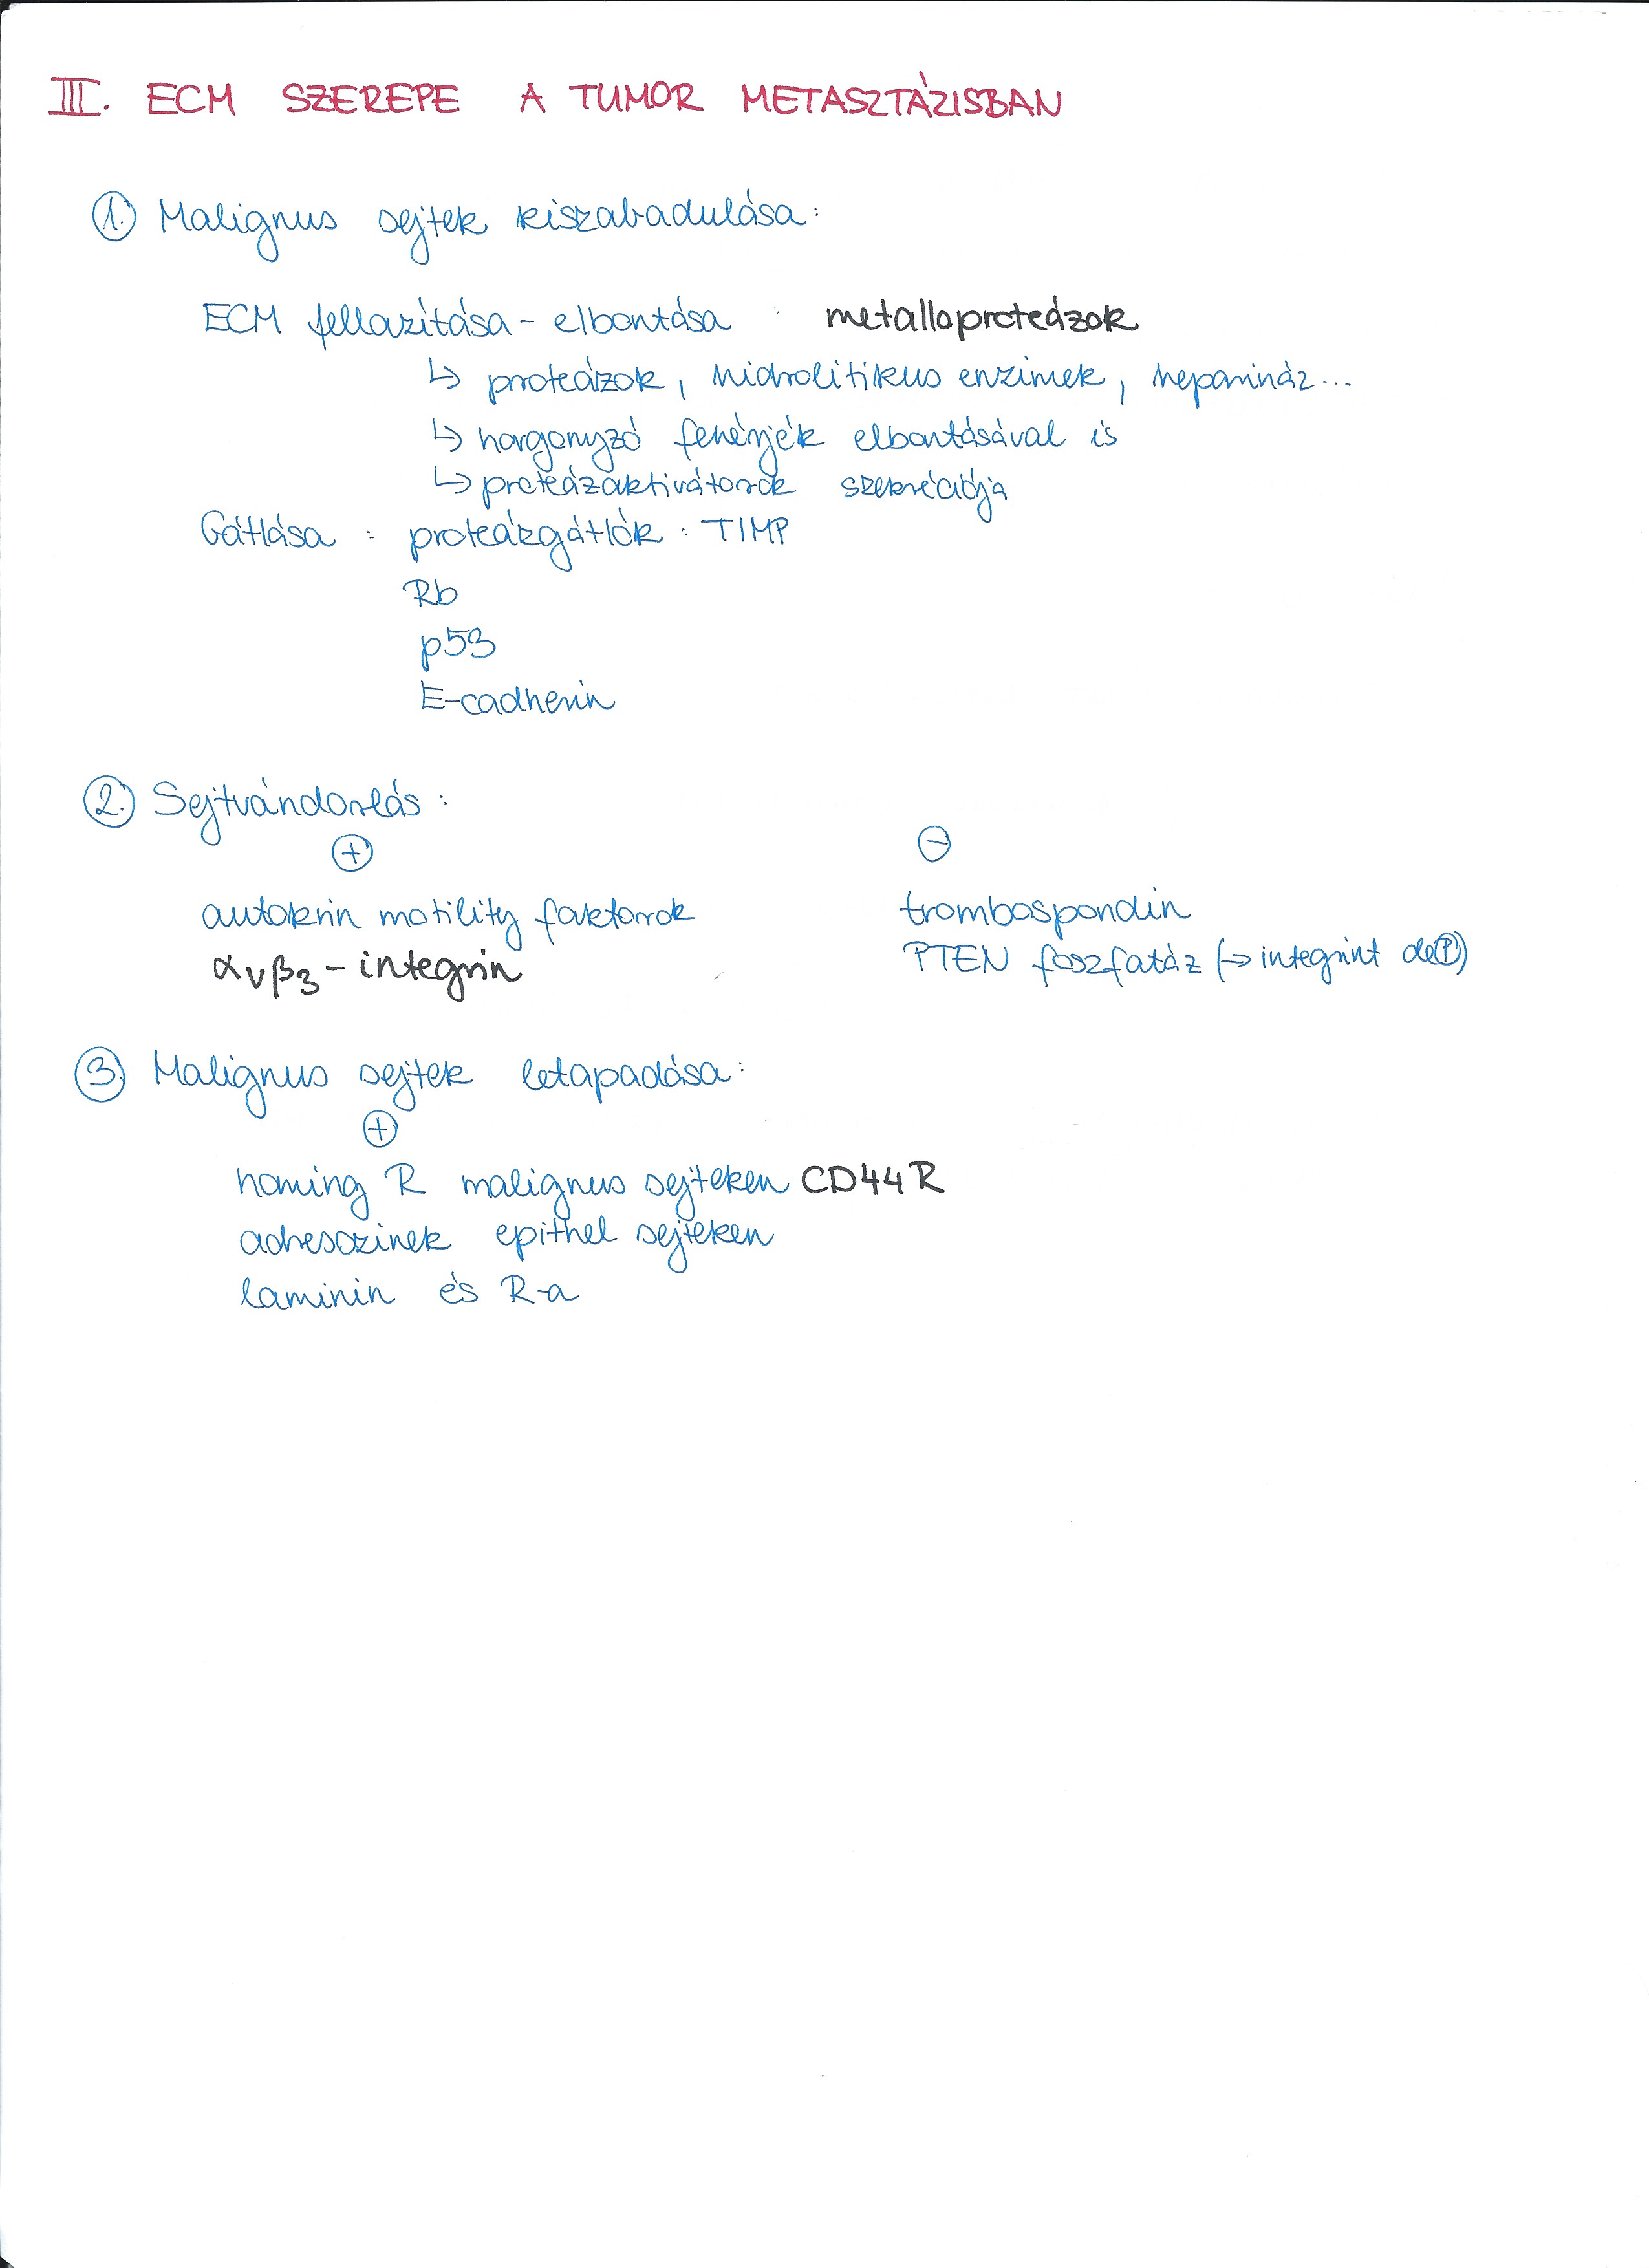 III. ECM SZEREPE A TUMOR METASZTÁZISBAN
1. Malignus sejtek kiszabadulása:
ECM fellazítása - elbontása : metalloproteázok
↳ proteázok, hidrolitikus enzimek, heparináz...
↳ horgonyzó fehérjék elbontásával is
↳ proteázaktivátorok szekréciója
Gátlása : proteázgátlók : TIMP
Rb
p53
E-cadherin
2. Sejtvándorlás :
⊕ ⊖
autokrin motility faktorok trombospondin
αvβ3 - integrin PTEN foszfatáz (→ integrint deⓅ)
3. Malignus sejtek letapadása:
⊕
homing R malignus sejteken CD44R
adresszinek epithel sejteken
laminin és R-a